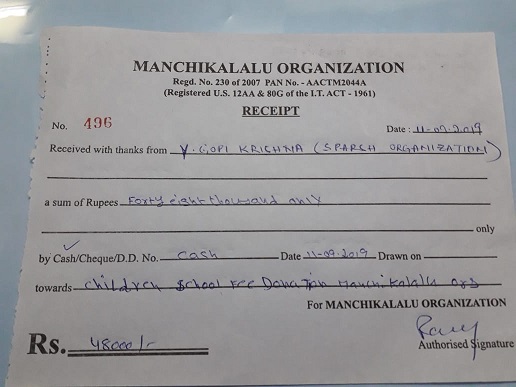 MANCHIKALALU ORGANIZATION
Regd. No. 230 of 2007 PAN No. - AACTM2044A
(Registered U.S. 12AA & 80G of the I.T. ACT - 1961)
RECEIPT
No. 496 Date : 11-09-2019
Received with thanks from Y. GOPI KRICHNA (SPARCH ORGANIZATION)
a sum of Rupees Forty eight thousand only
only
by Cash/Cheque/D.D. No. cash Date 11-09-2019 Drawn on
towards children school Fee Donation Manchikalalu org
For MANCHIKALALU ORGANIZATION
Rs. 48000/-
Authorised Signature